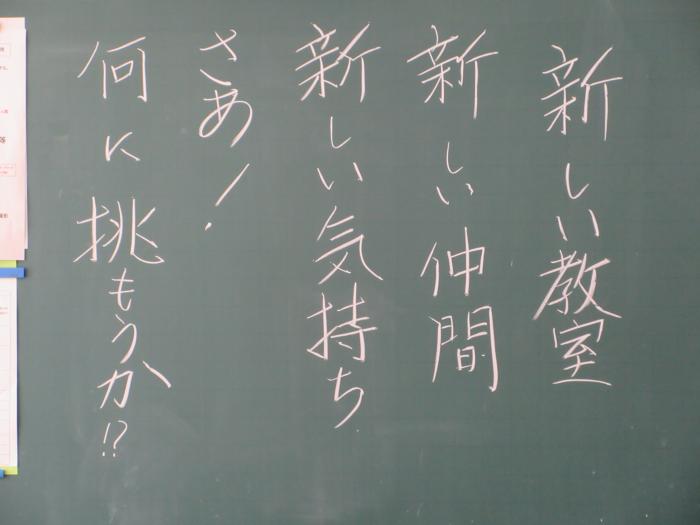 新しい教室
新しい仲間
新しい気持ち
さあ!
何に挑もうか!?